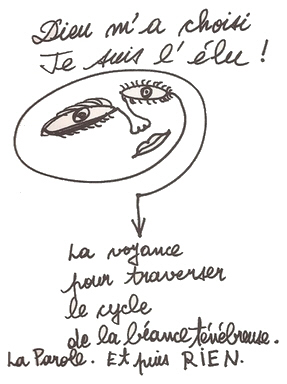 Dieu m'a choisi
Je suis l'élu !
La voyance
pour traverser
le cycle
de la béance ténébreuse.
La Parole. Et puis RIEN.